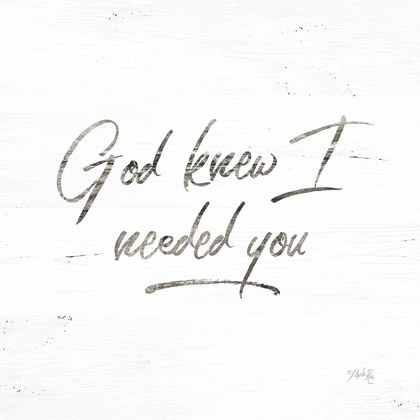 God knew I
needed you